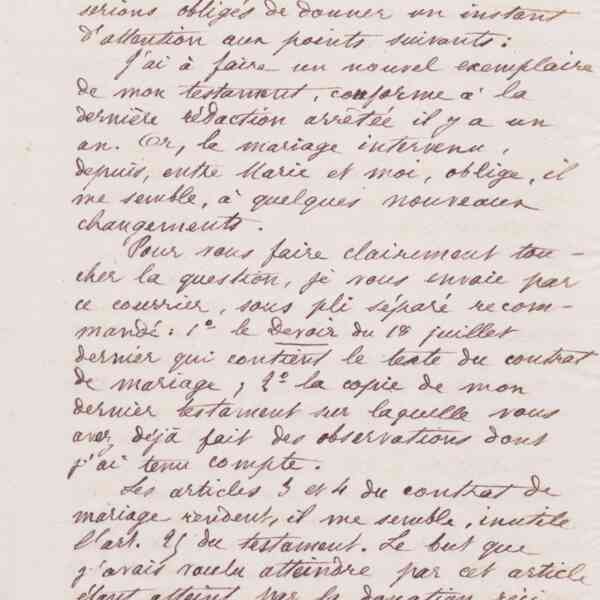 serions obligés de donner un instant
d'attention aux points suivants :
J'ai à faire un nouvel exemplaire
de mon testament, conforme à la
dernière rédaction arrêtée il y a un
an. Or, le mariage intervenu,
depuis, entre Marie et moi, oblige, il
me semble, à quelques nouveaux
changements.
Pour vous faire clairement tou-
cher la question, je vous envoie par
ce courrier, sous pli séparé recom-
mandé : 1º le Devoir du 18 juillet
dernier qui contient le texte du contrat
de mariage ; 2º la copie de mon
dernier testament sur laquelle vous
avez déjà fait des observations dont
j'ai tenu compte.
Les articles 3 et 4 du contrat de
mariage rendent, il me semble, inutile
l'art. 25 du testament. Le but que
j'avais voulu atteindre par cet article
étant atteint par la donation